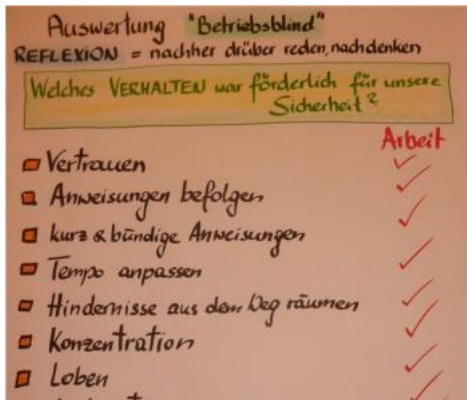 Auswertung "Betriebsblind"
REFLEXION = nachher drüber reden, nachdenken
Welches VERHALTEN war förderlich für unsere
Sicherheit?
Arbeit
Vertrauen ✓
Anweisungen befolgen ✓
kurz & bündige Anweisungen ✓
Tempo anpassen ✓
Hindernisse aus dem Weg räumen ✓
Konzentration ✓
Loben ✓